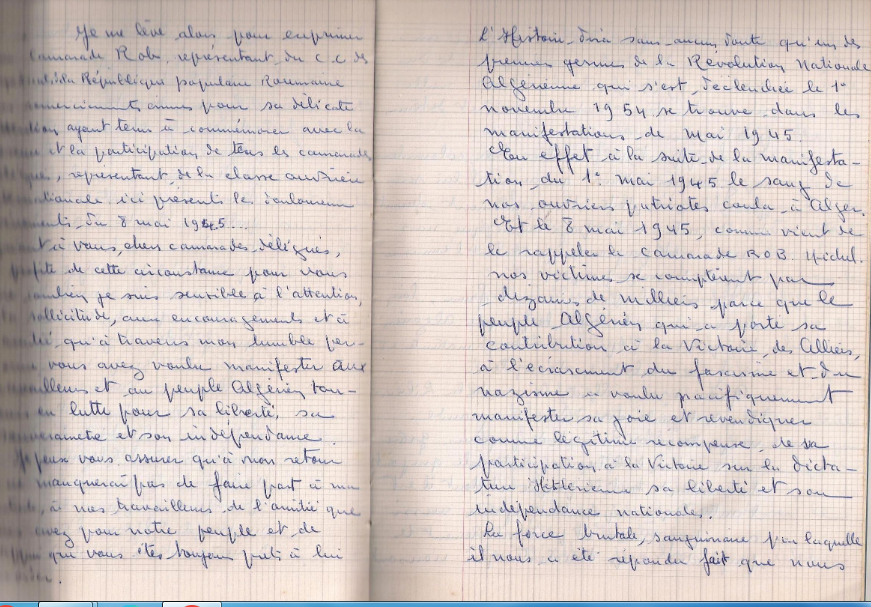 Je me lève alors pour exprimer
camarade Rob, représentant du C.C des
de la République populaire Roumaine
émus pour sa délicate
ayant tenu à commémorer avec la
et la participation de tous les camarades
, représentant de la classe ouvrière
ici présents les douloureux
du 8 mai 1945...
à vous, chers camarades délégués,
de cette circonstance pour vous
combien je suis sensible à l'attention,
sollicitude, aux encouragements et à
qu'à travers mon humble per-
vous avez voulu manifester aux
et au peuple Algérien tou-
en lutte pour sa liberté, sa
et son indépendance.
Je peux vous assurer qu'à mon retour
manquerai pas de faire part à ma
, à nos travailleurs de l'amitié que
avez pour notre peuple et de
que vous êtes toujours prêts à lui
L'Histoire dira sans aucun doute qu'un des
premiers germes de la Révolution Nationale
Algérienne qui s'est déclenchée le 1°
novembre 1954 se trouve dans les
manifestations de Mai 1945.
En effet à la suite de la manifesta-
tion du 1° mai 1945 le sang de
nos ouvriers patriotes coula à Alger.
Et le 8 mai 1945, comme vient de
le rappeler le camarade ROB. Michel.
nos victimes se comptèrent par
dizaines de milliers parce que le
peuple Algérien qui a porté sa
contribution à la Victoire des Alliés,
à l'écrasement du fascisme et du
nazisme a voulu pacifiquement
manifester sa joie et revendiquer
comme légitime récompense de sa
participation à la Victoire sur la dicta-
ture Hitlérienne sa liberté et son
indépendance nationale.
La force brutale, sanguinaire par laquelle
il nous a été répondu fait que nous